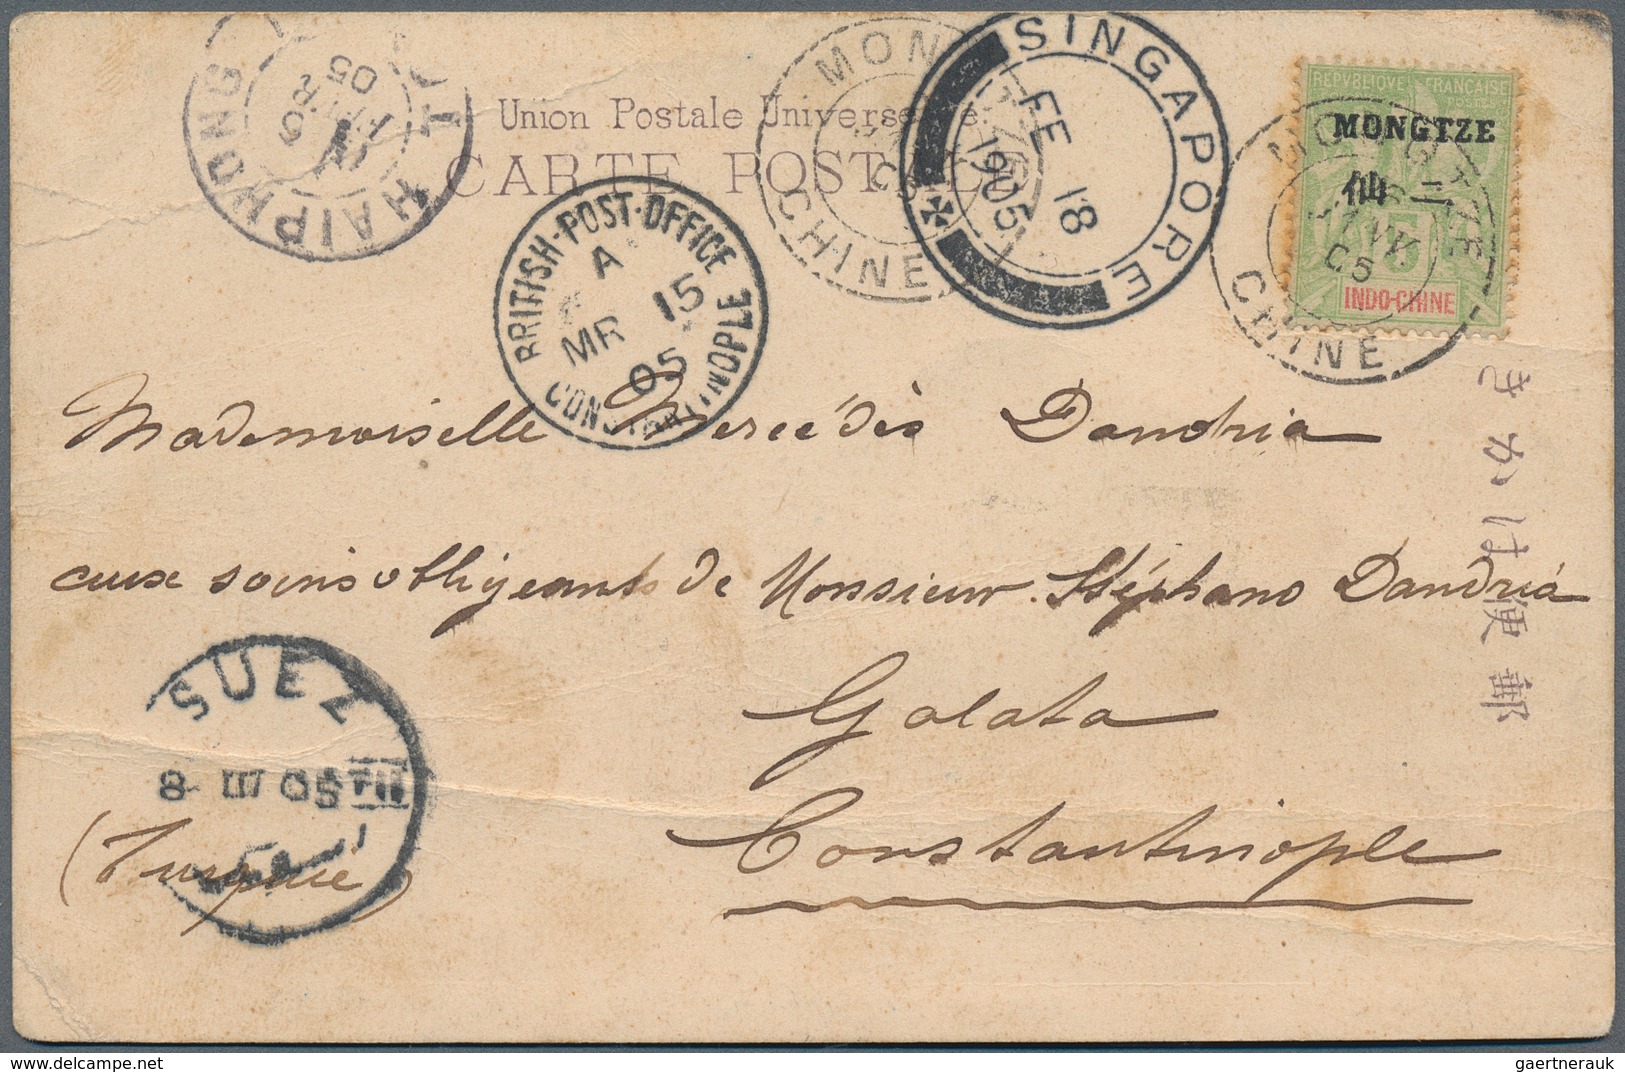 HAIPHONG
05
Union Postale Universelle
CARTE POSTALE
MONGTZE
CHINE
SINGAPORE
FE 18
1905
REPVBLIQVE FRANÇAISE
POSTES
MONGTZE
仙二
5
INDO-CHINE
MONGTZE
05
CHINE
BRITISH-POST-OFFICE
A
MR 15
05
CONSTANTINOPLE
きかは便郵
Mademoiselle Mercédès Dandria
aux soins obligeants de Monsieur Stéphano Dandria
Galata
Constantinople
(Turquie)
SUEZ
8 III 05
Delcampe.net
gaertnerauk